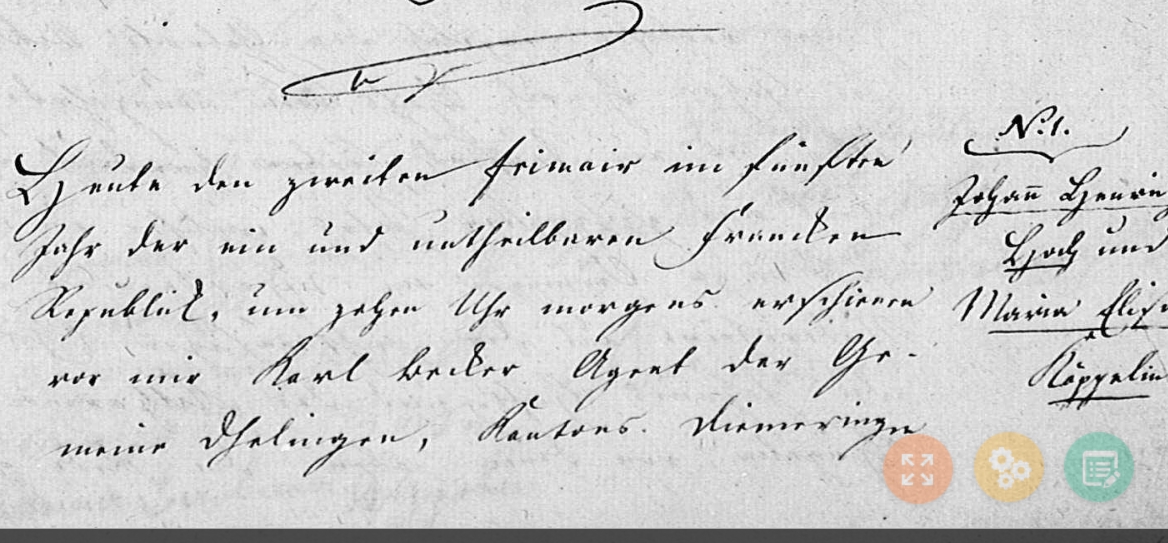 Heute den zweiten frimair im fünften
Jahr der ein und untheilbaren Francken
Republick, um zehen Uhr morgens erschienen
vor mir Karl Becker Agent der Ge-
meine Dhelingen, Kantons Diemeringen
N.1.
Johann Henri
Hoch und
Maria Elis
Käppelin